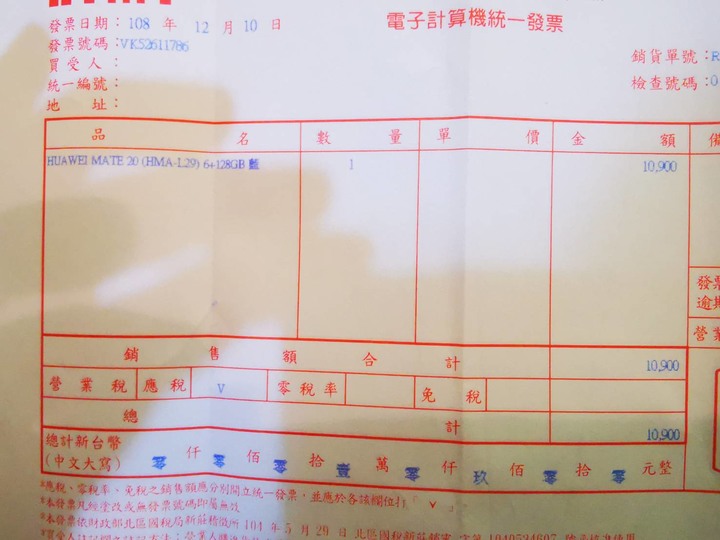 電子計算機統一發票
發票日期：108 年 12 月 10 日
發票號碼：VK52611786
買受人：
銷貨單號：R
統一編號：
檢查號碼：0
地 址：
品 名 數 量 單 價 金 額 備
HUAWEI MATE 20 (HMA-L29) 6+128GB 藍 1 10,900
發票
逾期
營業
銷 售 額 合 計 10,900
營業稅 應稅 V 零稅率 免 稅
總 計 10,900
總計新台幣
(中文大寫) 零 仟 零 佰 零 拾 壹 萬 零 仟 玖 佰 零 拾 零 元整
應稅、零稅率、免稅之銷售額應分別開立統一發票，並應於各該欄位打「 ˇ 」
本發票凡經塗改或無發票號碼即屬無效
本發票依財政部北區國稅局新莊稽徵所 104 年 5 月 29 日 北區國稅新莊銷